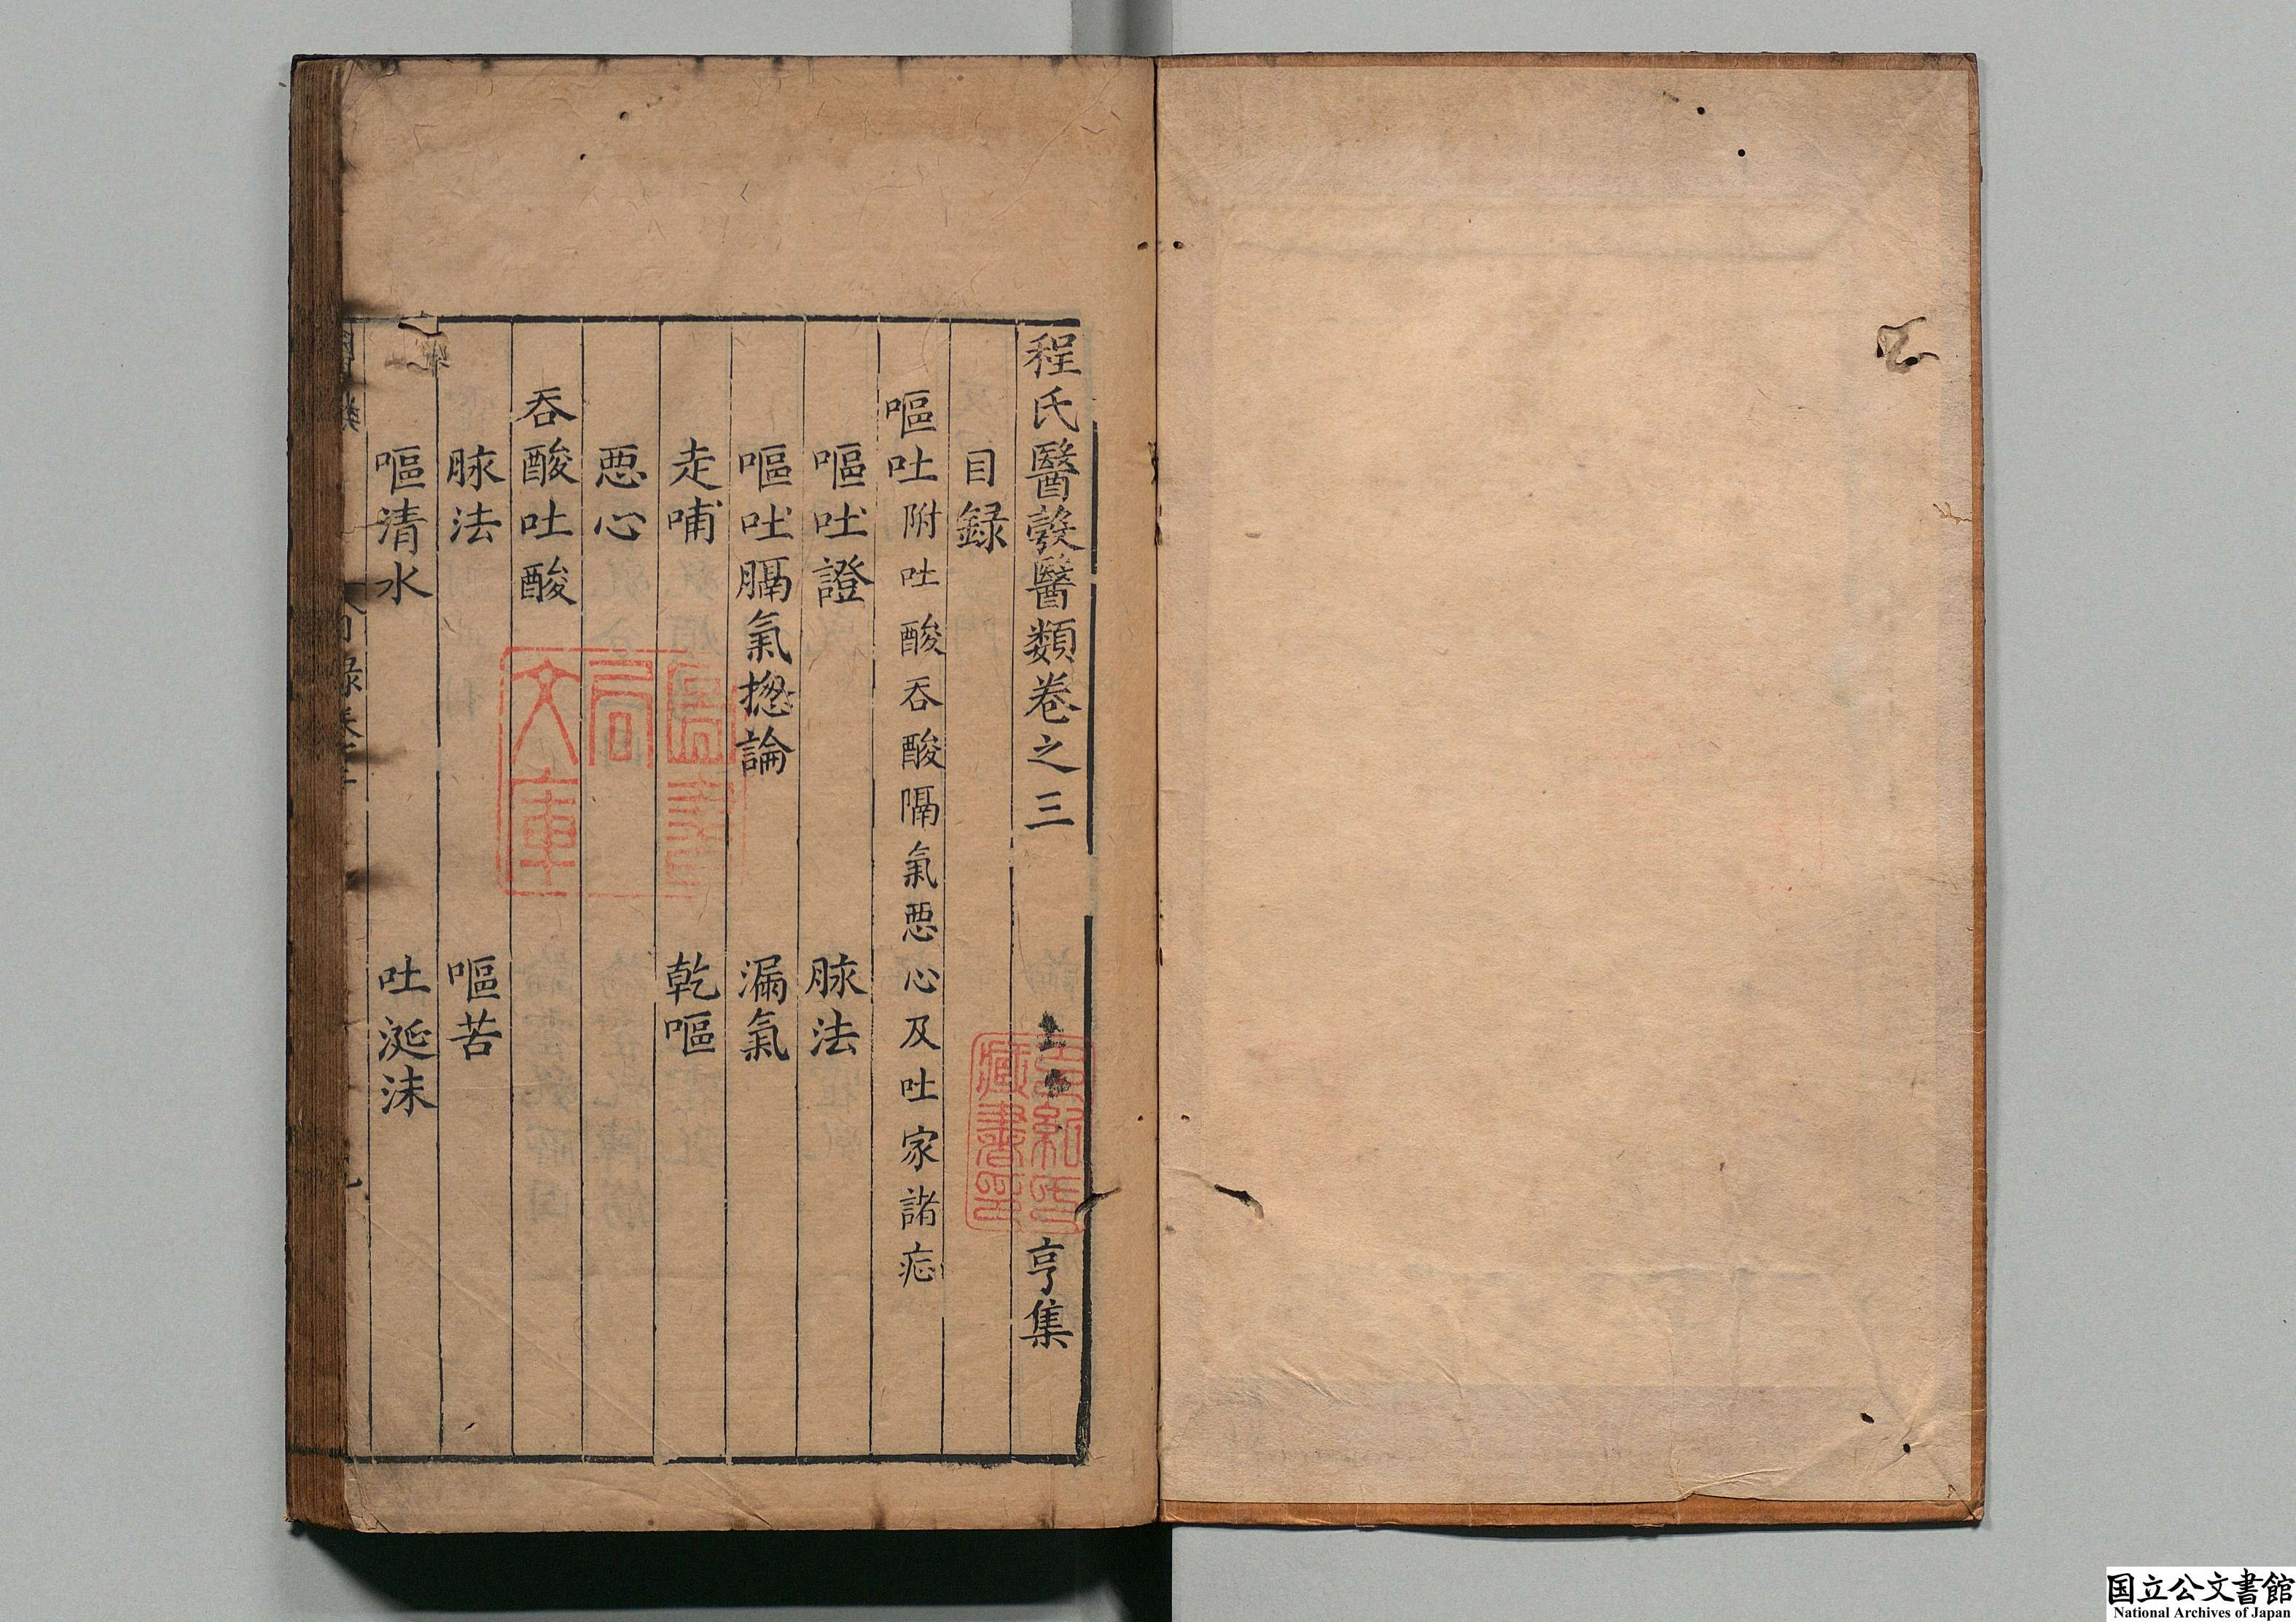 程氏醫彀醫類卷之三 亨集
目録
嘔吐附吐酸吞酸隔氣惡心及吐家諸症
嘔吐證 脉法
嘔吐膈氣揔論 漏氣
走哺 乾嘔
惡心
吞酸吐酸
脉法 嘔苦
嘔清水 吐涎沫
圖書
局
文庫
藏書
国立公文書館
National Archives of Japan